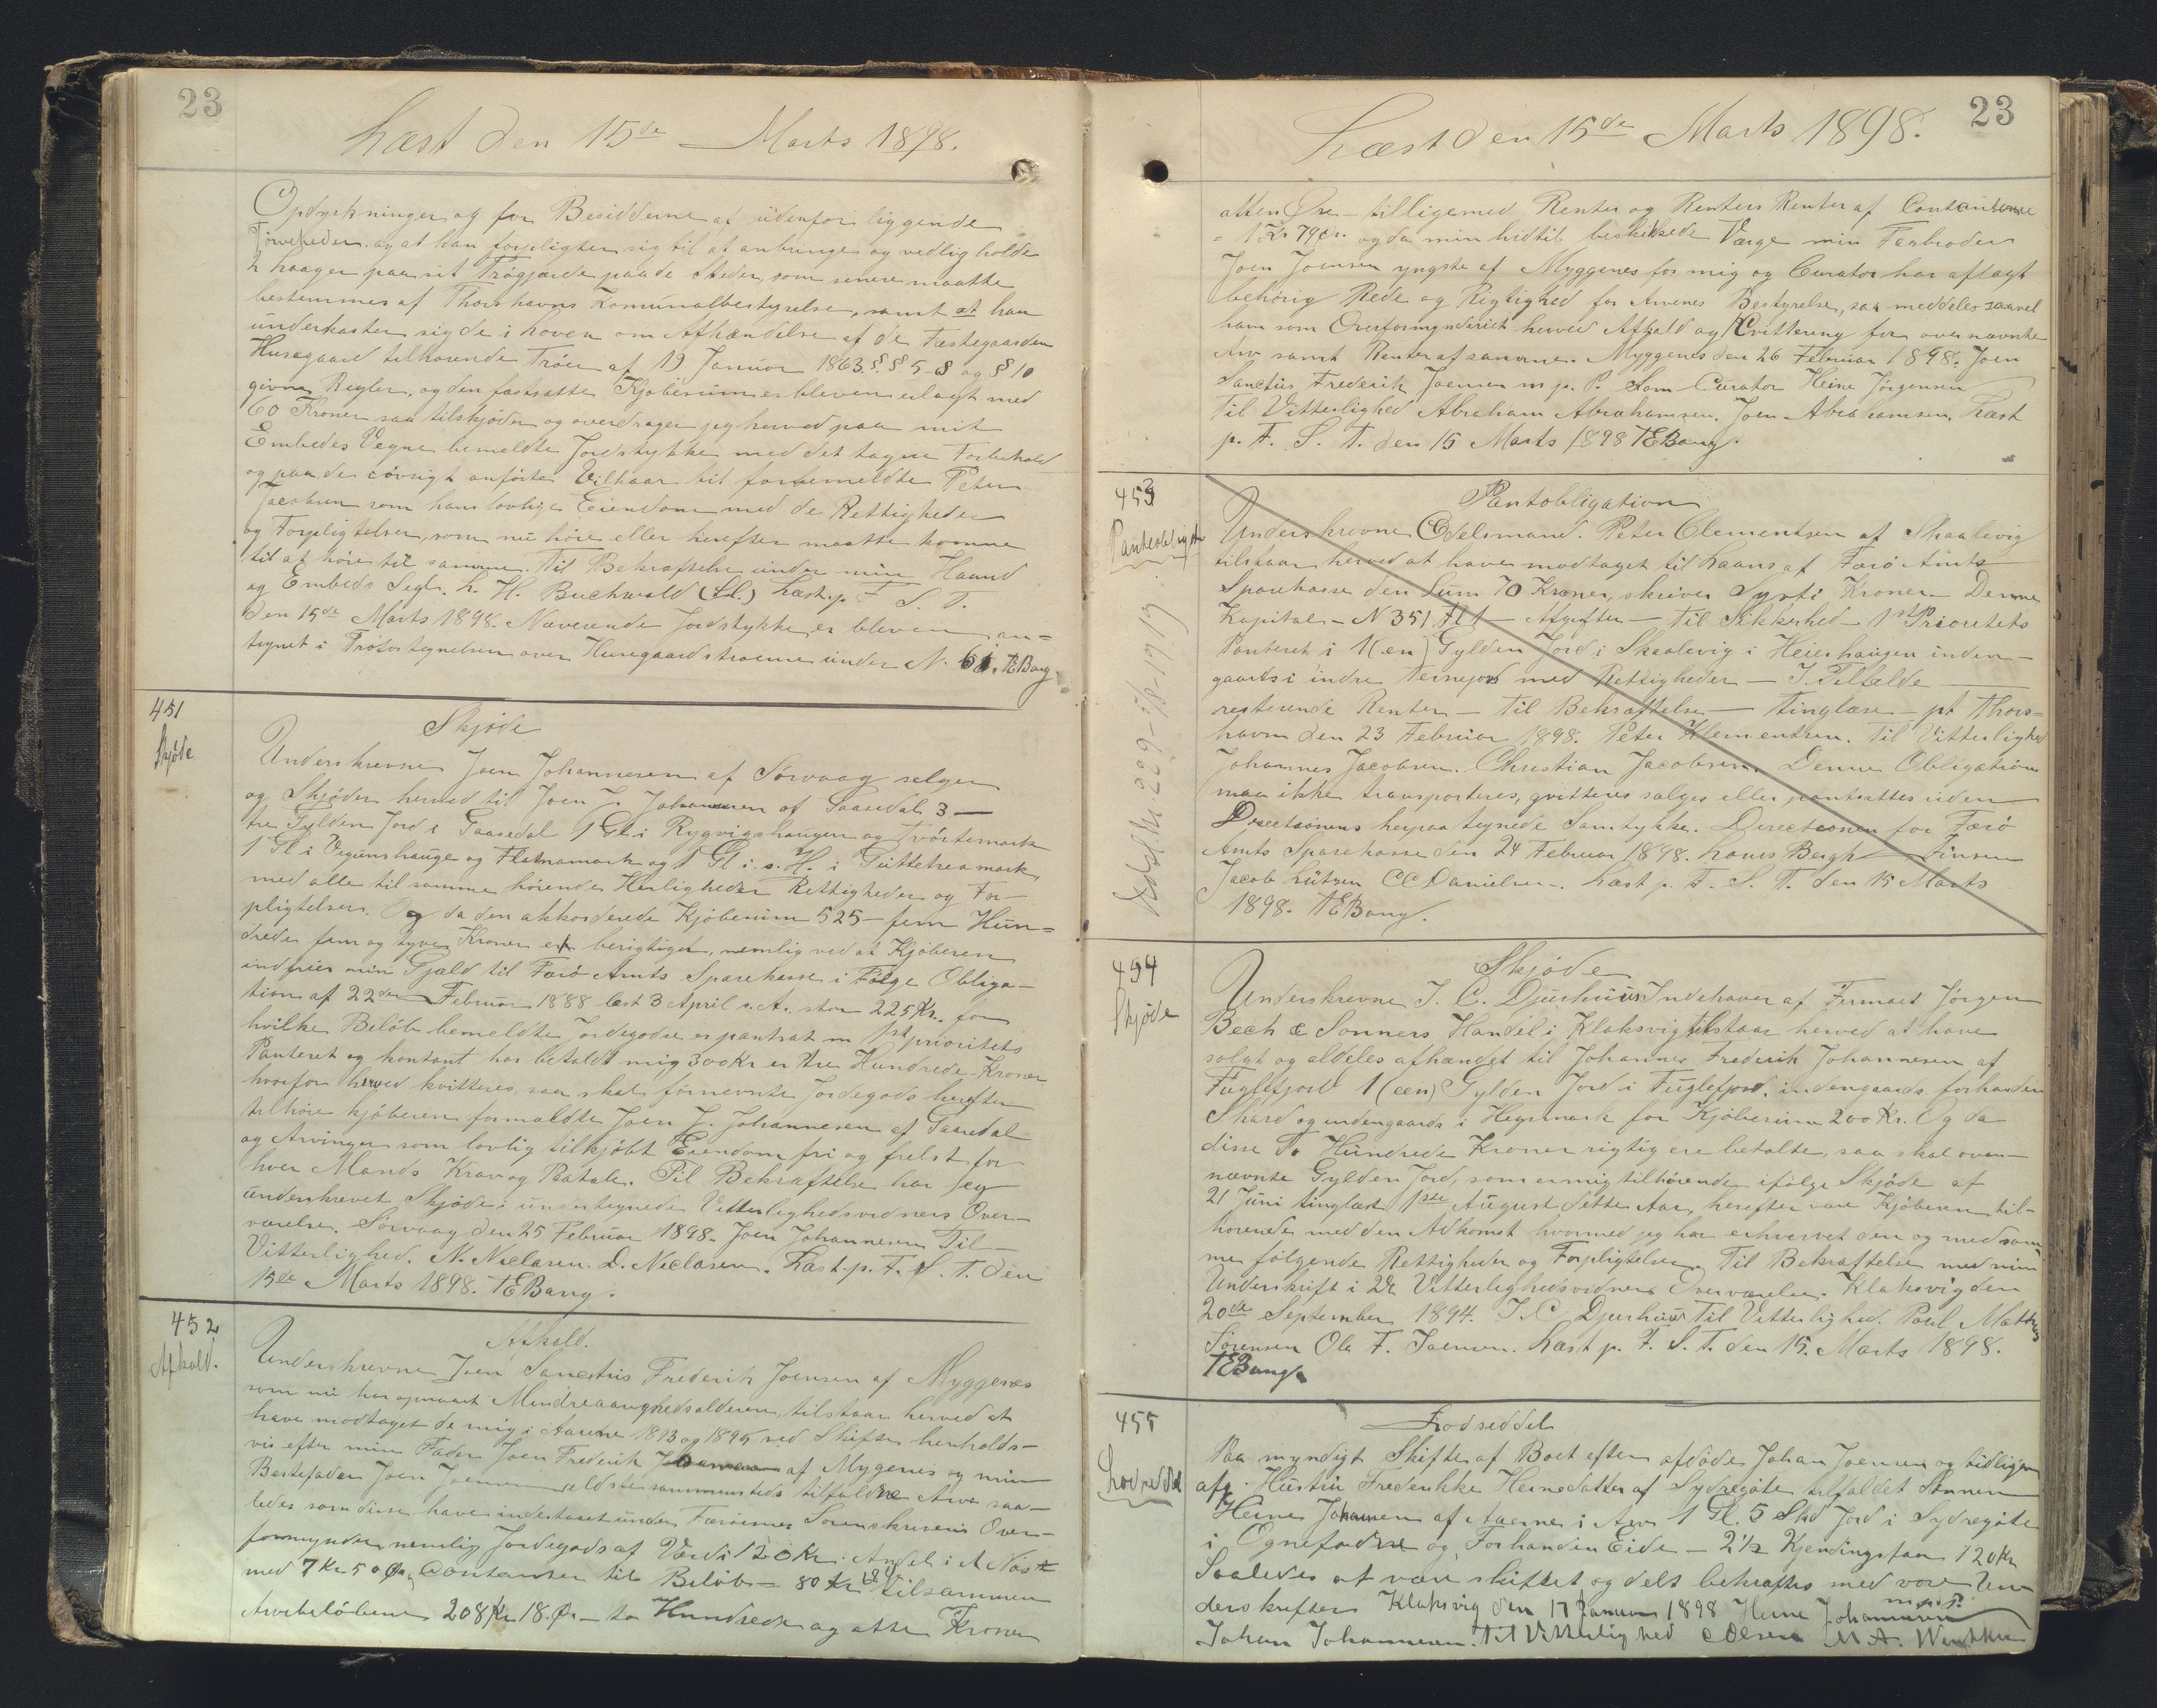 23
Læst den 15de Marts 1898.
Opdyrkninger og for Besidderne af udenfor liggende
Törveheder, og at han forpligter sig til at anbringe og vedligholde
2 Laager paa sit Trögjærde paa de Steder, som senere maatte
bestemmes af Thorshavns Komunalbestyrelse, samt at han
underkaster sig de i Loven om Afhændelse af de Fæstegaarden
Husegaard tilhörende Tröer af 19 Januar 1863 §.§ 5-8 og § 10
givne Regler, og den fastsatte Kjöbesum er bleven erlagt med
60 Kroner saa tilskjöder og overdrager jeg herved paa mit
Embedes Vegne bemeldte Jordstykke med det tagne Forbehold
og paa de iövrigt anförte Vilkaar til forbemeldte Peter
Jacobsen som hans lovlige Eiendom med de Rettigheder
og Forpligtelser, som nu höre eller herefter maatte komme
til at höre til samme. Til Bekræftelse under min Haand
og Embeds Segl. L. H. Buchwald (Sl.) Læst p. F. S. T.
den 15de Marts 1898. Nærværende Jordstykke er bleven an=
tegnet i Tröfortegnelsen over Husegaardströerne under N. 61. TEBang
451
Skjöde
Skjöde
Underskrevne Joen Johannesen af Sörvaag sælger
og Skjöder herved til Joen J. Johannesen af Gaasedal 3 —
tre Gylden Jord i Gaasedal 1 Gl. i Rygvigshaugen og Tvörtemark
1 Gl i Vegunshauge og Flatnamark og 1 Gl i. s. H. i Guttetreamark
med alle til samme hörende Herligheder Rettigheder og For-
pligtelser. Og da den akkorderede Kjöbesum 525 – fem Hun=
drede fem og tyve Kroner er berigtiget, nemlig ved at Kjöberen
indfrier min Gjæld til Færö Amts Sparekasse i Fölge Obliga-
tion af 22de Februar 1888 læst 3 April s. A. stor 225 Kr. for
hvilke Belöb bemeldte Jordegods er pantsat m 1ste prioritets
Panteret og kontant har betaldt mig 300 Kr er tre Hundrede Kroner
hvorfor herved kvitteres, saa skal fornevnte Jordegods herefter
tilhöre kjöberen formeldte Joen J. Johannesen af Gaasedal
og Arvinger som lovlig tilkjöbt Eiendom fri og frelst for
hver Mands Krav og Paatale. Til Bekræftelse har jeg
underskrevet Skjöde i undertegnede Vitterlighedsvidners Over-
værelse. Sörvaag den 25 Februar 1898. Joen Johannesen Til
Vitterlighed. N. Niclasen. D. Niclasen. Læst. p. F. S. T. den
15de Marts 1898. TEBang.
452
Afkald.
Afkald.
Underskrevne Joen Sanctus Frederik Joensen af Myggenes
som nu har opnaaet Mindreaarighedsalderen, tilstaar herved at
have modtaget de mig i Aarene 1893 og 1895 ved Skifte henholds-
vis efter min Fader Joen Frederik af Mygenes og min
Bestefader Joen Joensen ældste sammesteds tilfaldne Arve saa-
ledes som disse have indestaaet under Færöernes Sorenskriveris Over-
formynderi, nemlig Jordegods af Værdi 120 Kr. Andel i et Nöst
med 7 Kr 50 Öre, Contanter til Belöb – 80 Kr 68 Ör tilsammen
Arvebelöbene 208 Kr 18 Ör – to Hundrede og otte Kroner
23
Læst den 15de Marts 1898.
atten Öre – tilligemed Renter og Renters Renter af Contanterne
= 1 Kr 79 Ör. og da min hidtil beskikkede Værge min Farbroder
Joen Joensen yngste af Myggenes for mig og Curator har aflagt
behörig Rede og Rigtighed for Arvenes Bestyrelse, saa meddeles saavel
ham som Overformynderiet herved Afkald og Kvittering for overnævnte
Arv samt Renter af samme. Myggenes den 26 Februar 1898. Joen
Sanctus Frederik Joensen m. p. P. Som Curator Heine Jörgensen
Til Vitterlighed Abraham Abrahamsen. Joen Abrahamsen. Læst
p. F. S. T. den 15 Marts 1898 TEBang.
453
Panteobligation
Pantobligation
Underskrevne Odelsmand Peter Clementsen af Skaalevig
tilstaar herved at have modtaget til Laans af Færö Amts
Sparekasse den Sum 70 Kroner, skriver Syvti Kroner – Denne
Kapital – N 351 Fl 1 – Afgifter – Til Sikkerhed – 1ste Prioritets
Panteret i 1 (en) Gylden Jord i Skaalevig i Heiershaugen inden-
gaards i indre Ternejord med Rettigheder – I Tilfælde –
resterende Renter – Til Bekræftelse – tinglæse – pt Thors=
havn den 23 Februar 1898. Peter Klementsen. Til Vitterlighed
Johannes Jacobsen. Christian Jacobsen. Denne Obligation
maa ikke transporteres, qvitteres sælges eller pantsættes uden
Directionens herpaa tegnede Samtykke. Directionen for Færö
Amts Sparekasse den 24 Februar 1898. Louis Bergh Finsen
Jacob Lützen CC Danielsen. Læst p. F. S. T. den 15 Marts
1898. TEBang.
454
Skjöde
Skjöde
Underskrevne J. C. Djurhuus Indehaver af Firmaet Jörgen
Bech & Sönners Handel i Klaksvig tilstaar herved at have
solgt og aldeles afhændet til Johannes Frederik Johannesen af
Fuglefjord 1 (een) Gylden Jord i Fuglefjord. indengaards forhanden
Skard og udengaards i Hegnmark for Kjöbesum 200 Kr. Og da
disse To Hundrede Kroner rigtig ere betalte, saa skal oven-
nævnte Gylden Jord, som er mig tilhörende ifölge Skjöde af
21 Juni tinglæst 1ste August dette Aar, herefter være Kjöberen til-
hörende med den Adkomst hvormed jeg har erhvervet den og med sam
me fölgende Rettigheder og Forpligtelser. Til Bekræftelse med min
Underskrift i 2de Vitterlighedsvidners Overværelse. Klaksvig den
20de September 1894. J. C Djurhuus Til Vitterlighed. Poul Mathias
Sörensen Ola F. Joensen. Læst p. F. S. T. den 15. Marts 1898.
TEBang.
455
Lodseddel
Lodseddel
Paa myndigt Skifte af Boet efter afdöde Johan Joensen og tidligere
afg. Hustru Frederikke Heinesdatter af Sydregöte tilfaldt Sönnen
Heine Johannesen af Aaerne i Arv 1 Gl. 5 Skd Jord i Sydregöte
i Ognefordre og Forhanden Eide – 2½ Kjendingsfaar 120 Kr
Saaledes at være skiftet og delt bekræftes med vore Un-
derskrifter Klaksvig den 17 Januar 1898 Heine Johannesen
m. p. P.
Johan Johannesen. Til Vitterlighed M. A. Winther